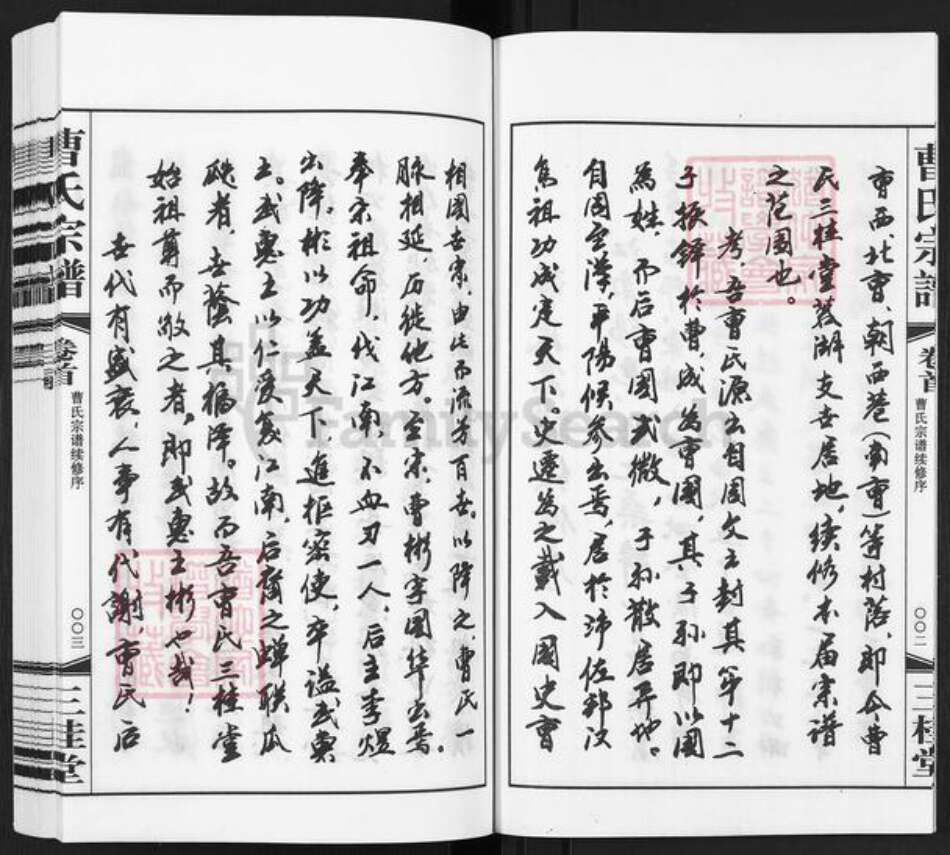 曹氏宗譜
卷首
曹氏宗谱续修序
〇〇二
三桂堂
曹西北曹、朝西巷（南曹）等村落，即今曹
氏三桂堂荻湖支世居地，续修本届宗谱
之范围也。
考吾曹氏源出自周文王封其第十二
子振铎於曹，成为曹国，其子孙即以国
为姓，而后曹国式微，子孙散居异地。
自周至漢，平陽候参出焉，居於沛佐邦汉
高祖功成定天下。史遷为之載入國史曹
相國世家，由此而流芳百世。以降之，曹氏一
脉相延，历徙他方。至宋，曹彬字國华出焉，
奉宋祖命，伐江南，不血刃一人，后主李煜
出降，彬以功盖天下，進枢密使，卒谥武惠
王。武惠王以仁受爰江南，后裔之蝉联瓜
瓞者，世蔭其福澤。故而吾曹氏三桂堂
始祖尊而敬之者，即武惠王彬也哉！
世代有盛衰，人事有代謝，曹氏后
曹氏宗譜
卷首
曹氏宗谱续修序
〇〇三
三桂堂
FamilySearch